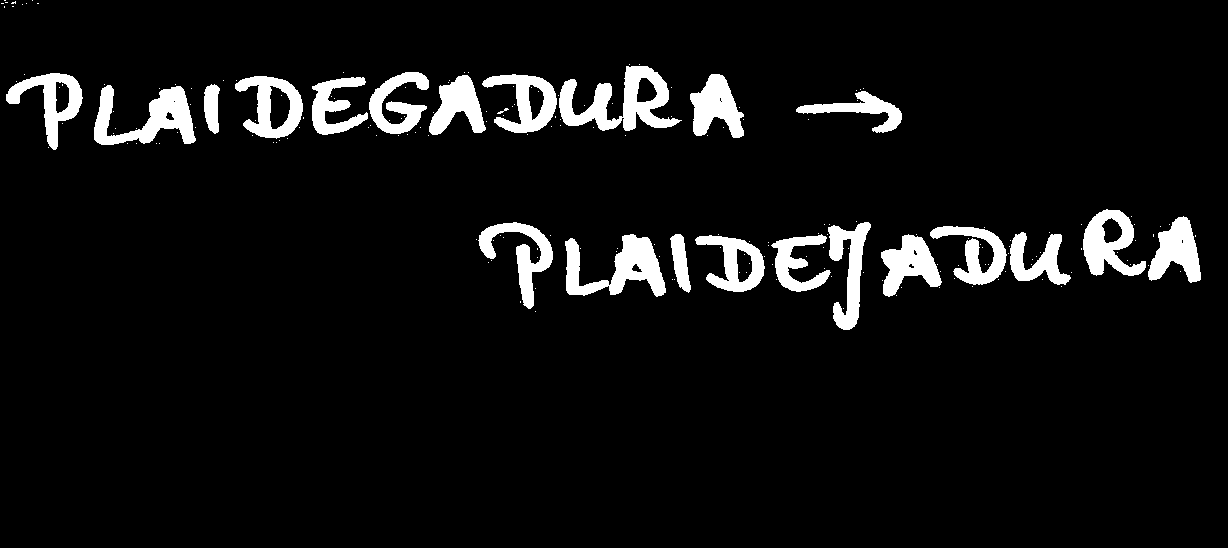 PLAIDEGADURA →
PLAIDEJADURA